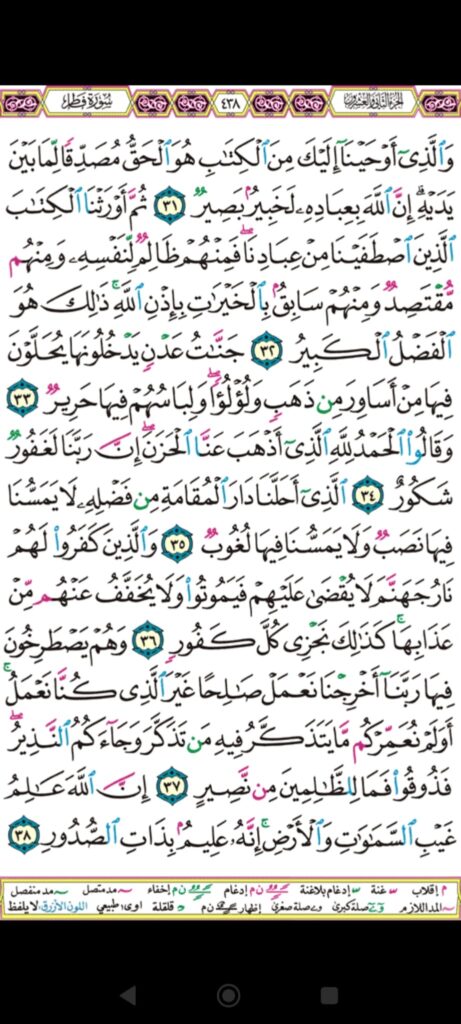 سُورَةُ فَاطِرٍ ٤٣٨ الجزء الثاني والعشرون
وَٱلَّذِىٓ أَوۡحَيۡنَآ إِلَيۡكَ مِنَ ٱلۡكِتَٰبِ هُوَ ٱلۡحَقُّ مُصَدِّقٗا لِّمَا بَيۡنَ
يَدَيۡهِۗ إِنَّ ٱللَّهَ بِعِبَادِهِۦ لَخَبِيرُۢ بَصِيرٞ ٣١ ثُمَّ أَوۡرَثۡنَا ٱلۡكِتَٰبَ
ٱلَّذِينَ ٱصۡطَفَيۡنَا مِنۡ عِبَادِنَاۖ فَمِنۡهُمۡ ظَالِمٞ لِّنَفۡسِهِۦ وَمِنۡهُم
مُّقۡتَصِدٞ وَمِنۡهُمۡ سَابِقُۢ بِٱلۡخَيۡرَٰتِ بِإِذۡنِ ٱللَّهِۚ ذَٰلِكَ هُوَ
ٱلۡفَضۡلُ ٱلۡكَبِيرُ ٣٢ جَنَّٰتُ عَدۡنٖ يَدۡخُلُونَهَا يُحَلَّوۡنَ
فِيهَا مِنۡ أَسَاوِرَ مِن ذَهَبٖ وَلُؤۡلُؤٗاۖ وَلِبَاسُهُمۡ فِيهَا حَرِيرٞ ٣٣
وَقَالُواْ ٱلۡحَمۡدُ لِلَّهِ ٱلَّذِىٓ أَذۡهَبَ عَنَّا ٱلۡحَزَنَۖ إِنَّ رَبَّنَا لَغَفُورٞ
شَكُورٌ ٣٤ ٱلَّذِىٓ أَحَلَّنَا دَارَ ٱلۡمُقَامَةِ مِن فَضۡلِهِۦ لَا يَمَسُّنَا
فِيهَا نَصَبٞ وَلَا يَمَسُّنَا فِيهَا لُغُوبٞ ٣٥ وَٱلَّذِينَ كَفَرُواْ لَهُمۡ
نَارُ جَهَنَّمَ لَا يُقۡضَىٰ عَلَيۡهِمۡ فَيَمُوتُواْ وَلَا يُخَفَّفُ عَنۡهُم مِّنۡ
عَذَابِهَاۚ كَذَٰلِكَ نَجۡزِى كُلَّ كَفُورٖ ٣٦ وَهُمۡ يَصۡطَرِخُونَ
فِيهَا رَبَّنَآ أَخۡرِجۡنَا نَعۡمَلۡ صَٰلِحًا غَيۡرَ ٱلَّذِى كُنَّا نَعۡمَلُۚ
أَوَلَمۡ نُعَمِّرۡكُم مَّا يَتَذَكَّرُ فِيهِ مَن تَذَكَّرَ وَجَآءَكُمُ ٱلنَّذِيرُۖ
فَذُوقُواْ فَمَا لِلظَّٰلِمِينَ مِن نَّصِيرٍ ٣٧ إِنَّ ٱللَّهَ عَٰلِمُ
غَيۡبِ ٱلسَّمَٰوَٰتِ وَٱلۡأَرۡضِۚ إِنَّهُۥ عَلِيمُۢ بِذَاتِ ٱلصُّدُورِ ٣٨
م إقلاب غنة إدغام بلاغنة ن م إدغام ن م إخفاء مد متصل مد منفصل
المد اللازم صلة كبرى صلة صغرى إظهار ن م قلقلة اوى: طبيعي اللون الأزرق: لا يلفظ